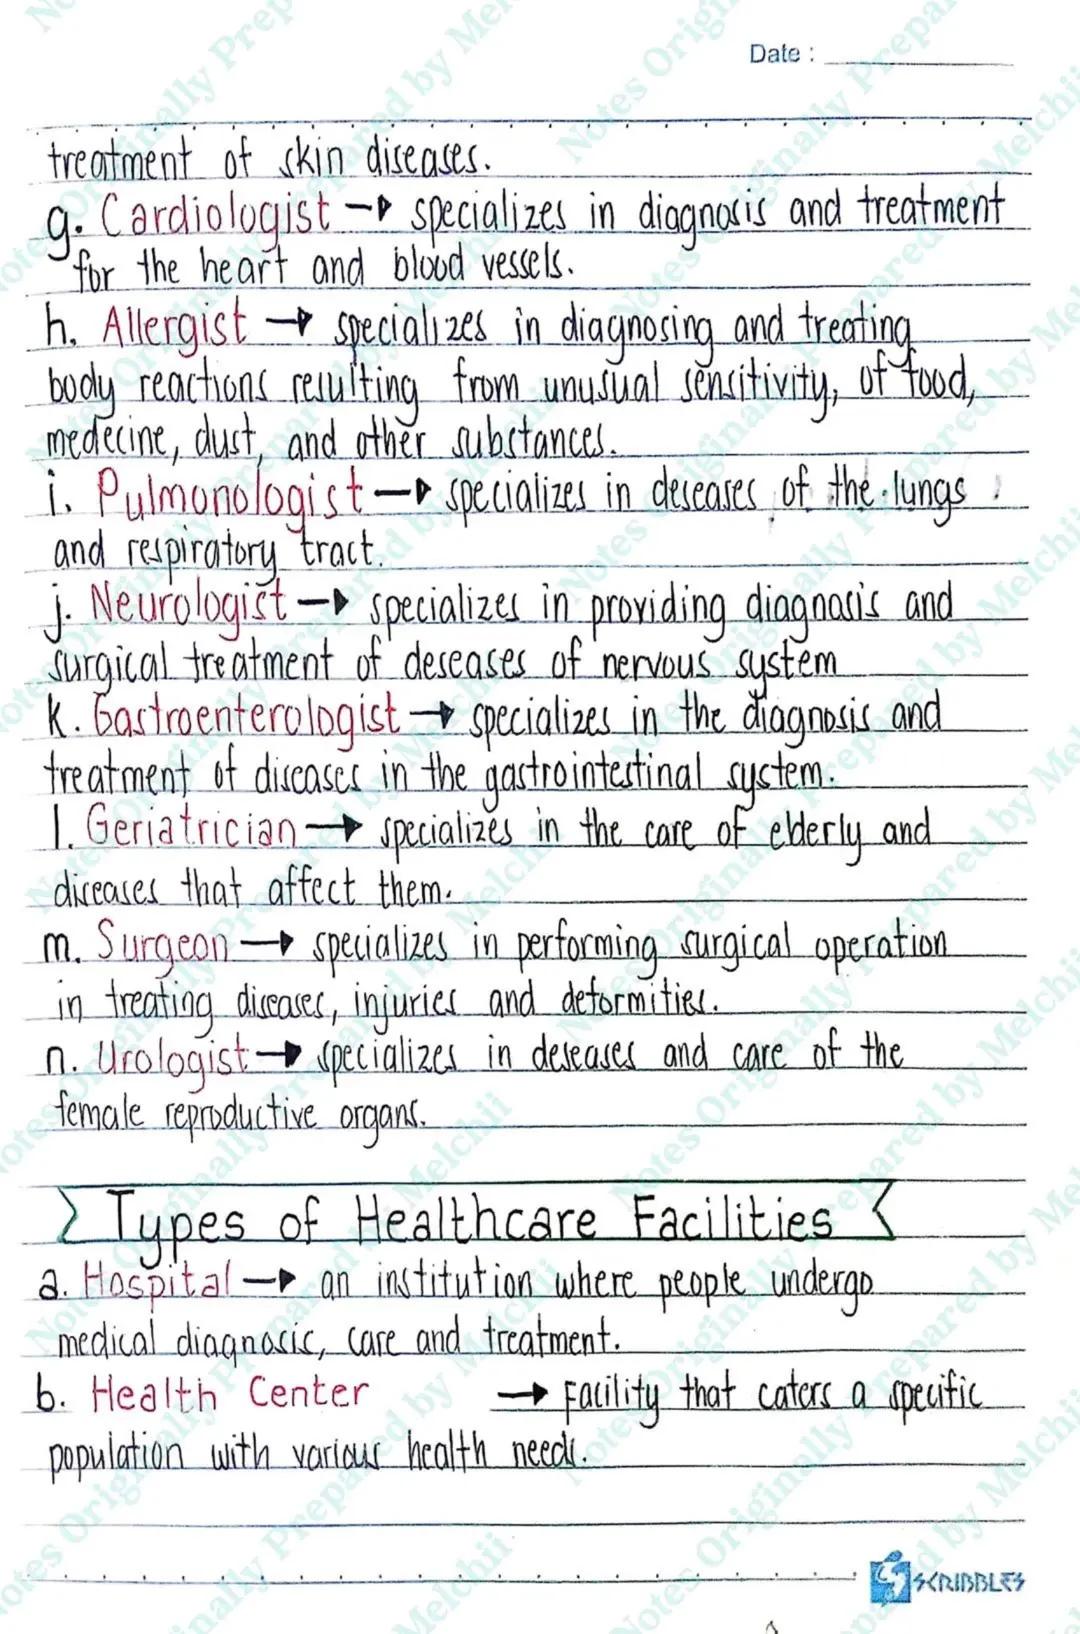 Date :
treatment of skin diseases.
g. Cardiologist → specializes in diagnosis and treatment
for the heart and blood vessels.
h. Allergist → specializes in diagnosing and treating
body reactions resulting from unusual sensitivity, of food,
medecine, dust, and other substances.
i. Pulmonologist → specializes in deseases of the lungs
and respiratory tract.
j. Neurologist → specializes in providing diagnosis and
surgical treatment of deseases of nervous system
k. Gastroenterologist → specializes in the diagnosis and
treatment of diseases in the gastrointestinal system.
l. Geriatrician → specializes in the care of elderly and
diseases that affect them.
m. Surgeon → specializes in performing surgical operation
in treating diseases, injuries and deformities.
n. Urologist → specializes in deseases and care of the
female reproductive organs.
Types of Healthcare Facilities
a. Hospital → an institution where people undergo
medical diagnosis, care and treatment.
b. Health Center → Facility that caters a specific
population with various health needs.
SCRIBBLES
Notes Originally Prepared by Melchii